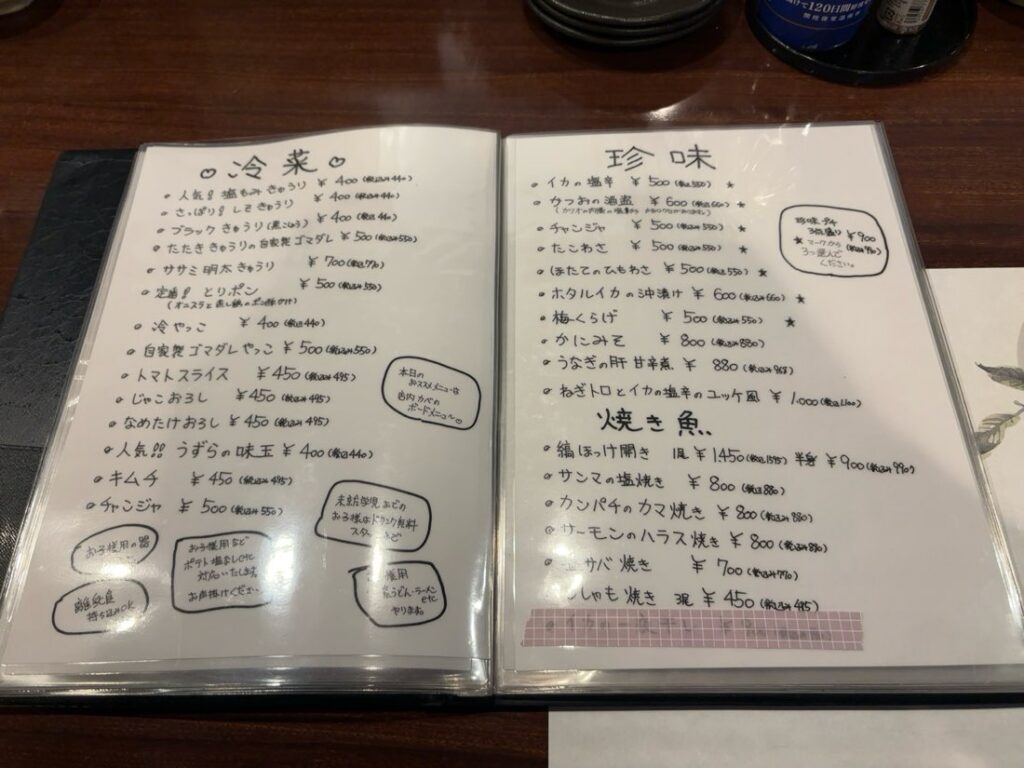 で120日間
♡ 冷菜 ♡
・人気!! 塩もみきゅうり ¥400(税込み440)
・さっぱり! しそきゅうり ¥400(税込み440)
・ブラックきゅうり(黒こしょう) ¥400(税込440)
・たたききゅうりの自家製ゴマダレ ¥500(税込み550)
・ササミ明太きゅうり ¥700(税込770)
・定番! とりポン ¥500(税込み550)
(オニスラと蒸し鶏のポン酢がけ)
・冷やっこ ¥400(税込440)
・自家製ゴマダレやっこ ¥500(税込み550)
・トマトスライス ¥450(税込み495)
・じゃこおろし ¥450(税込み495)
・なめたけおろし ¥450(税込み495)
・人気!! うずらの味玉 ¥400(税込440)
・キムチ ¥450(税込み495)
・チャンジャ ¥500(税込み550)
本日の
おススメメニューは
店内カベの
ボードメニューへ♡
未就学児などの
お子様はドリンク無料
お子様用の器
離乳食
持ち込みOK
お子様用など
ポテト塩なしetc
対応いたします。
お声掛けください
用
うどん・ラーメン
etc
ヤリます。
珍味
・イカの塩辛 ¥500(税込550) ★
・かつおの酒盗 ¥600(税込660) ★
・チャンジャ ¥500(税込み550) ★
・たこわさ ¥500(税込み550) ★
・ほたてのひもわさ ¥500(税込550) ★
・ホタルイカの沖漬け ¥600(税込み660) ★
・梅くらげ ¥500(税込み550) ★
・かにみそ ¥800(税込み880)
・うなぎの肝 甘辛煮 ¥880(税込み968)
・ねぎトロとイカの塩辛のユッケ風 ¥1,000(税込1100)
珍味
3点盛り ¥900
★マークから
3つ選んで
ください。
焼き魚
・縞ほっけ開き 1尾 ¥1450(税込1595) 半身 ¥900(税込み990)
・サンマの塩焼き ¥800(税込880)
・カンパチのカマ焼き ¥800(税込み880)
・サーモンのハラス焼き ¥800(税込み880)
サバ焼き ¥700(税込み770)
ししゃも焼き 3尾 ¥450(税込み495)